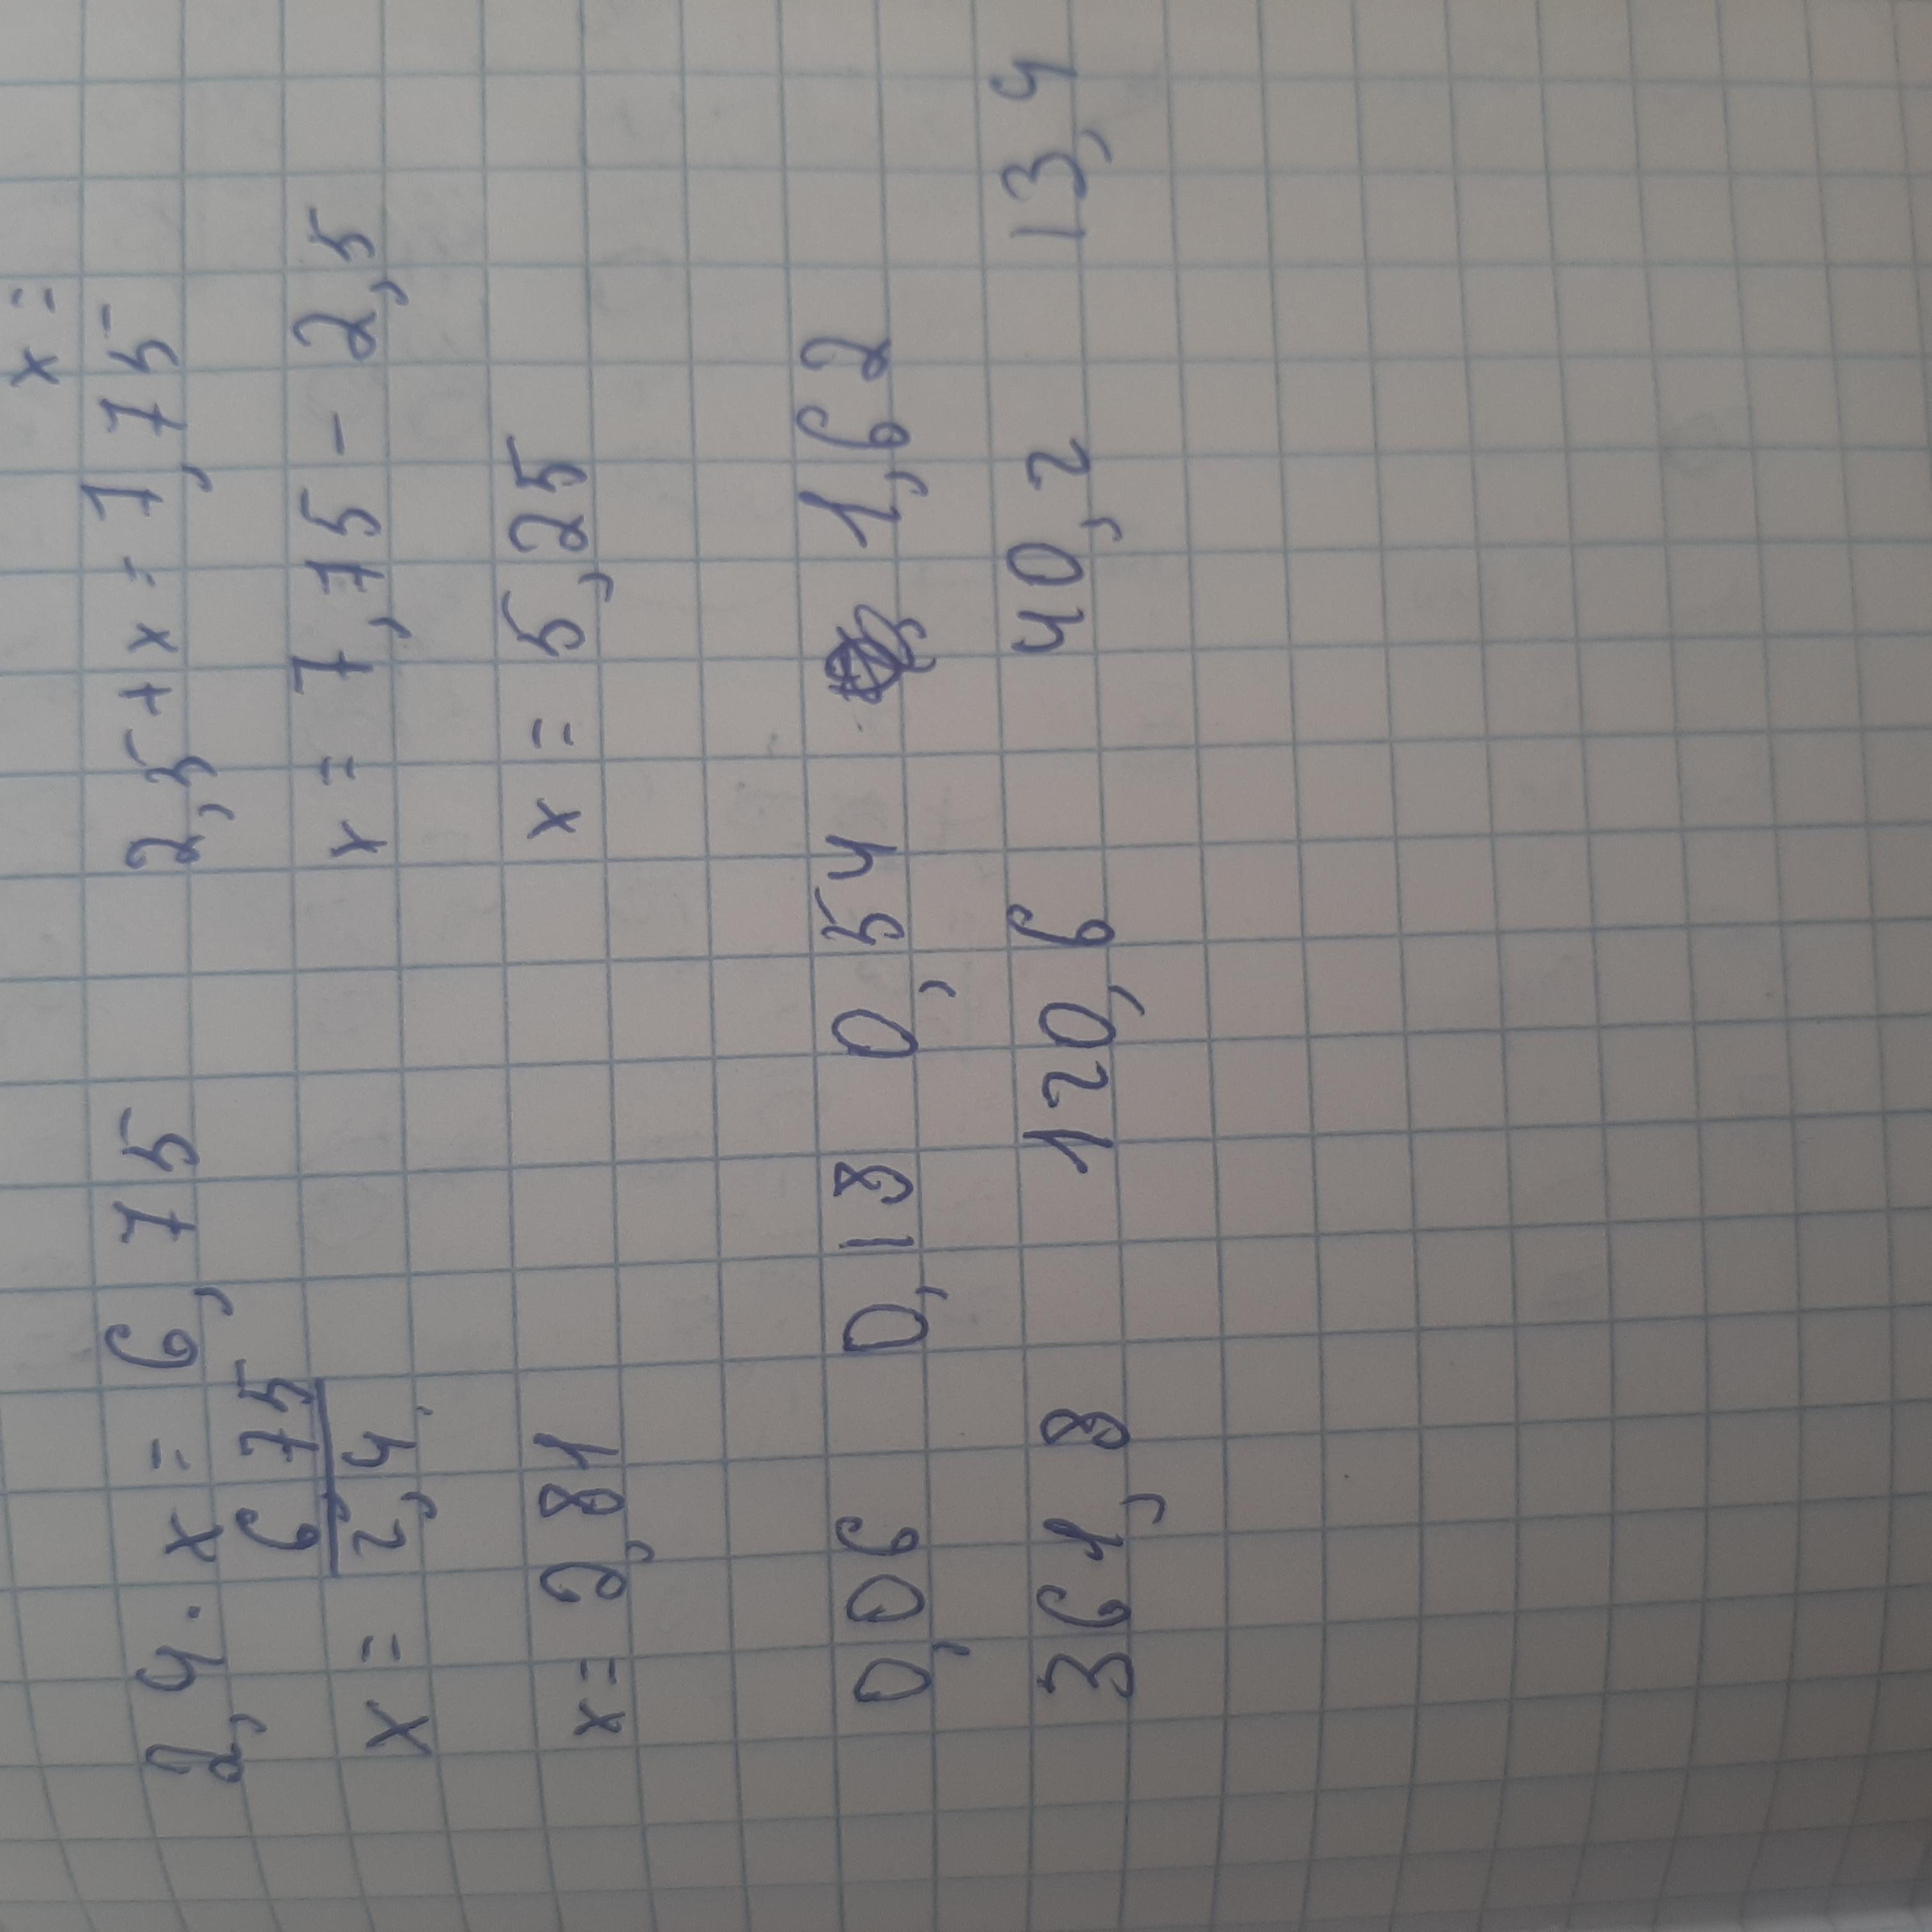 x =
2,4 · x = 6,75 2,5 + x = 7,75
6,75
x = 2,4 x = 7,75 - 2,5
x = 2,81 x = 5,25
0,06 0,18 0,54 1,62
361,8 120,6 40,2 13,4